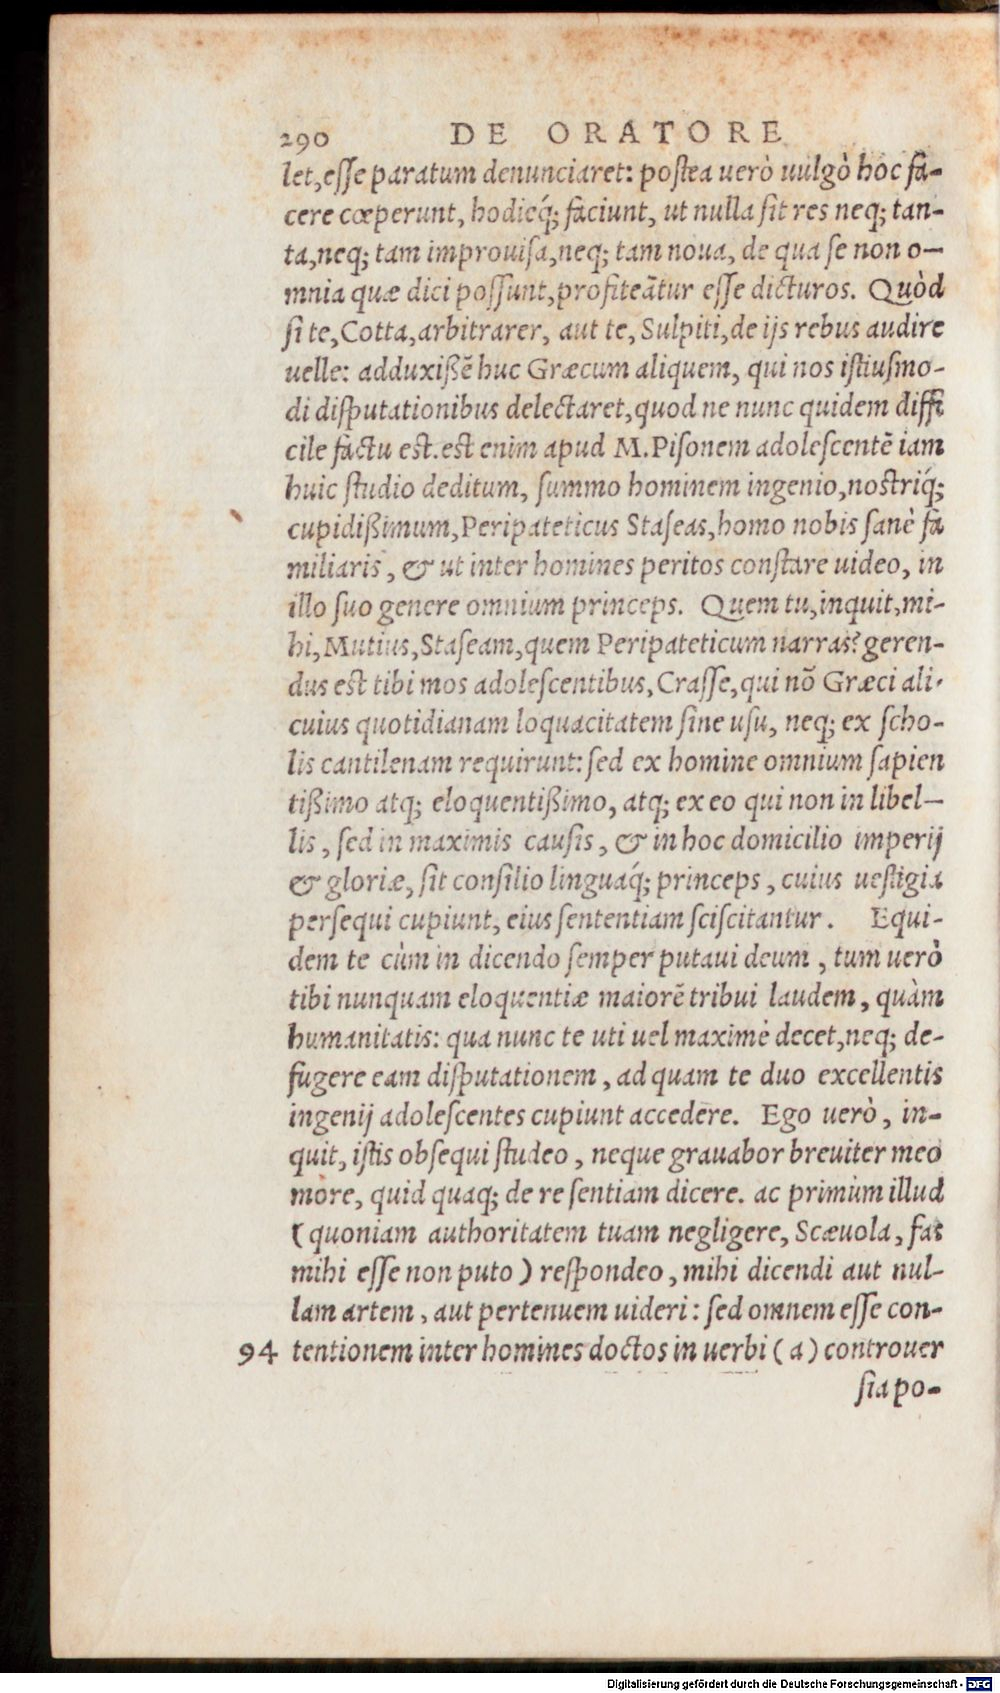 290 DE ORATORE
let,esse paratum denunciaret: postea uerò uulgò hoc fa-
cere cœperunt, hodieq́; faciunt, ut nulla sit res neq; tan-
ta,neq; tam improuisa,neq; tam noua, de qua se non o-
mnia quæ dici possunt,profiteãtur esse dicturos. Quòd
si te,Cotta,arbitrarer, aut te, Sulpiti,de ijs rebus audire
uelle: adduxißẽ huc Græcum aliquem, qui nos istiusmo-
di disputationibus delectaret,quod ne nunc quidem diffi
cile factu est.est enim apud M.Pisonem adolescentẽ iam
huic studio deditum, summo hominem ingenio,nostriq́;
cupidißimum,Peripateticus Staseas,homo nobis sanè fa
miliaris, & ut inter homines peritos constare uideo, in
illo suo genere omnium princeps. Quem tu,inquit,mi-
hi,Mutius,Staseam,quem Peripateticum narras? geren-
dus est tibi mos adolescentibus,Crasse,qui nõ Græci ali-
cuius quotidianam loquacitatem sine usu, neq; ex scho-
lis cantilenam requirunt: sed ex homine omnium sapien
tißimo atq; eloquentißimo, atq; ex eo qui non in libel-
lis, sed in maximis causis, & in hoc domicilio imperij
& gloriæ, sit consilio linguaq́; princeps, cuius uestigia
persequi cupiunt, eius sententiam sciscitantur. Equi-
dem te cùm in dicendo semper putaui deum, tum uerò
tibi nunquam eloquentiæ maiorẽ tribui laudem, quàm
humanitatis: qua nunc te uti uel maximè decet,neq; de-
fugere eam disputationem, ad quam te duo excellentis
ingenij adolescentes cupiunt accedere. Ego uerò, in-
quit, istis obsequi studeo, neque grauabor breuiter meo
more, quid quaq; de re sentiam dicere. ac primùm illud
(quoniam authoritatem tuam negligere, Scæuola, fas
mihi esse non puto) respondeo, mihi dicendi aut nul-
lam artem, aut pertenuem uideri: sed omnem esse con-
94 tentionem inter homines doctos in uerbi (a) controuer
sia po-
Digitalisierung gefördert durch die Deutsche Forschungsgemeinschaft - DFG